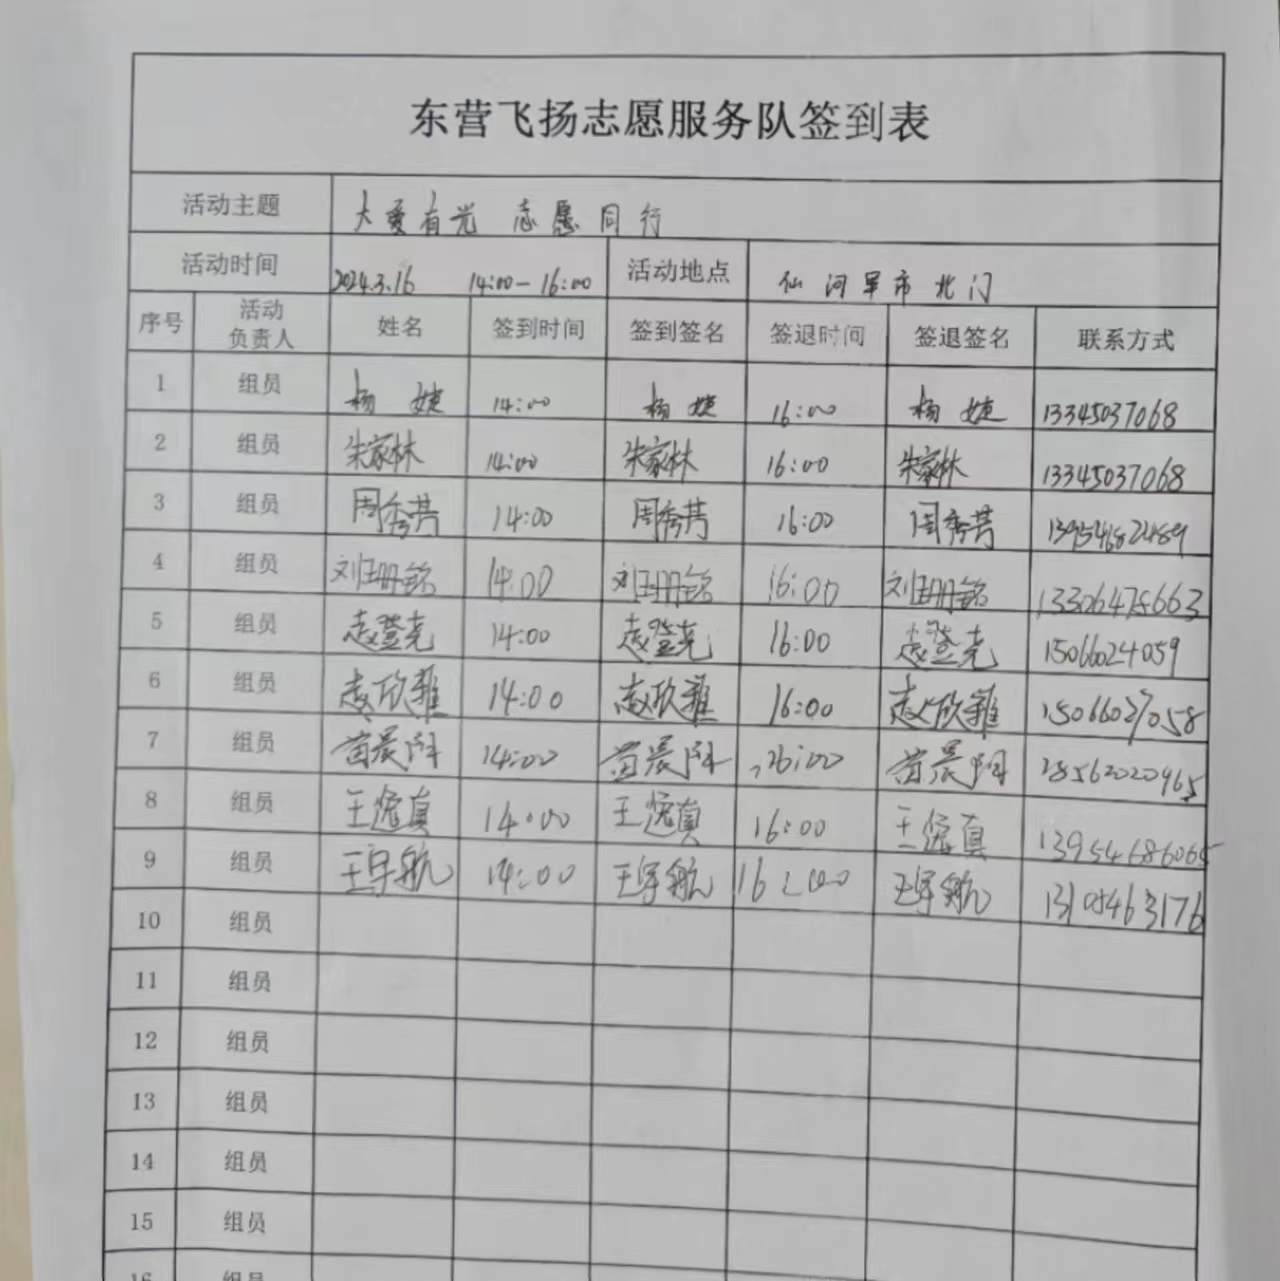 东营飞扬志愿服务队签到表
活动主题 大爱有光 志愿同行
活动时间 2024.3.16 14:00-16:00 活动地点 仙河早市北门
序号 活动负责人 姓名 签到时间 签到签名 签退时间 签退签名 联系方式
1 组员 杨婕 14:00 杨婕 16:00 杨婕 13345037068
2 组员 朱家林 14:00 朱家林 16:00 朱家林 13345037068
3 组员 周秀芹 14:00 周秀芹 16:00 周秀芹 13954682489
4 组员 14:00 16:00 13306475663
5 组员 赵登尧 14:00 赵登尧 16:00 赵登尧 15066024059
6 组员 赵欣雅 14:00 赵欣雅 16:00 赵欣雅
7 组员 14:00 18562020965
8 组员 14:00 16:00 13954686065
9 组员 王宇航 14:00 王宇航 16:00 王宇航
10 组员
11 组员
12 组员
13 组员
14 组员
15 组员
16 组员